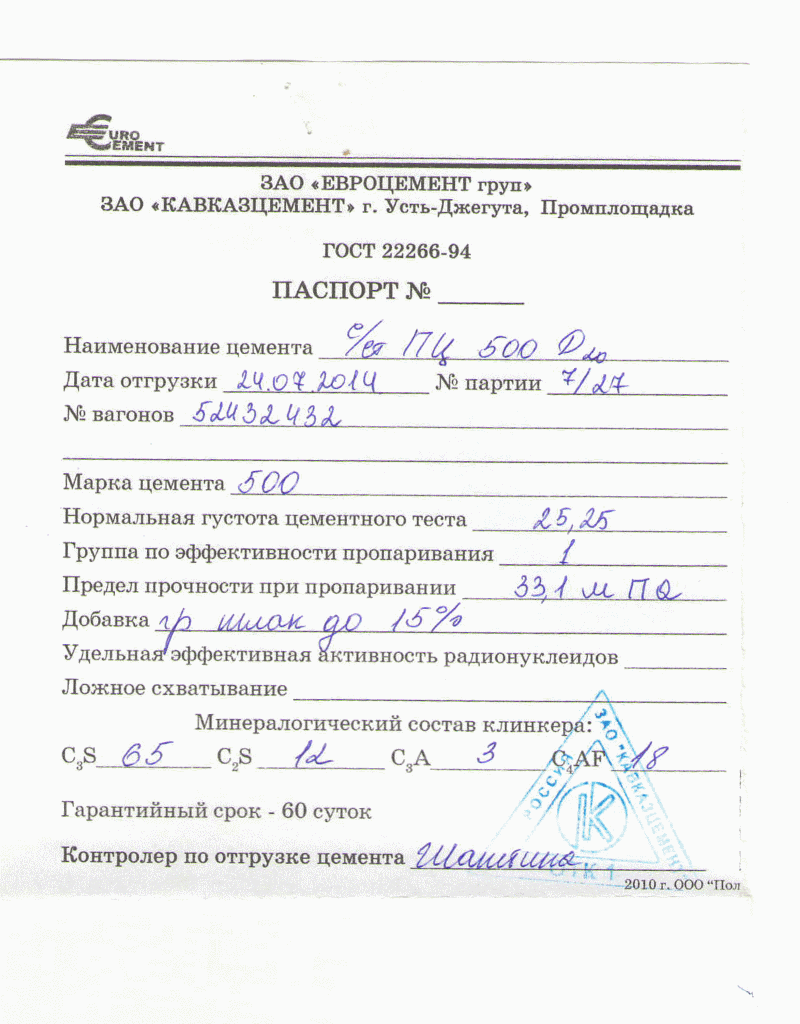 EURO
CEMENT
ЗАО «ЕВРОЦЕМЕНТ груп»
ЗАО «КАВКАЗЦЕМЕНТ» г. Усть-Джегута, Промплощадка
ГОСТ 22266-94
ПАСПОРТ №
Наименование цемента с/ст ПЦ 500 Д20
Дата отгрузки 24.07.2014 № партии 7/27
№ вагонов 52432432
Марка цемента 500
Нормальная густота цементного теста 25,25
Группа по эффективности пропаривания 1
Предел прочности при пропаривании 33,1 м Па
Добавка гр шлак до 15%
Удельная эффективная активность радионуклеидов
Ложное схватывание
Минералогический состав клинкера:
C3S 65 C2S 12 C3A 3 C4AF 18
Гарантийный срок - 60 суток
Контролер по отгрузке цемента
РОССИЯ ЗАО "КАВКАЗЦЕМЕНТ" ОТК 1
2010 г. ООО "Пол